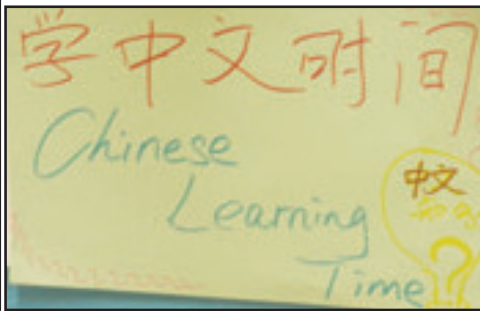 学中文时间
Chinese
Learning
Time
中文
?